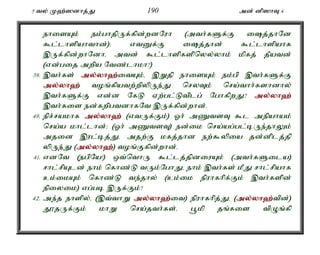 5 வல் முஹ்ஸனாத்து 190 அன் னிஸாவு 4
நாளையும் நம்பாதிருக்கின்றனரோ (அவர்களுக்கு ஷைத்தானே
கூட்டாளியாவான்); எவனுக்கு ஷைத்தான் கூட்டாளியாக
இருக்கின்றானோ, அவன் கூட்டாளிகளிலெல்லாம் மிகத் தீயவன்
(என்பதை அறிய வேண்டாமா?)
39. இவர்கள் அல்லாஹ்வையும், இறுதி நாளையும் நம்பி இவர்களுக்கு
அல்லாஹ் வழங்கியவற்றிலிருந்து செலவும் செய்வார்களானால்
இவர்களுக்கு என்ன கேடு ஏற்பட்டுவிடப் போகிறது? அல்லாஹ்
இவர்களை நன்கறிபவனாகவே இருக்கின்றான்.
40. நிச்சயமாக அல்லாஹ் (எவருக்கும்) ஓர் அணுவளவு கூட அநியாயம்
செய்ய மாட்டான்; (ஓர் அணுவளவு) நன்மை செய்யப்பட்டிருந்தாலும்
அதனை இரட்டித்து, அதற்கு மகத்தான நற்கூலியை தன்னிடத்தி
லிருந்து (அல்லாஹ்) வழங்குகின்றான்.
41. எனவே (நபியே!) ஒவ்வொரு கூட்டத்தினரையும் (அவர்களுடைய)
சாட்சியுடன் நாம் கொண்டு வரும்போது, நாம் இவர்கள் மீது சாட்சியாக
உம்மையும் கொண்டு வந்தால் (உம்மை நிராகரிக்கும் இவர்களின்
நிலைமை) எப்படி இருக்கும்?
42. அந்த நாளில், (இவ்வாறு அல்லாஹ்வை) நிராகரித்து, (அல்லாஹ்வின்)
தூதருக்கும் மாறு செய்தவர்கள், பூமி தங்களை விழுங்கி